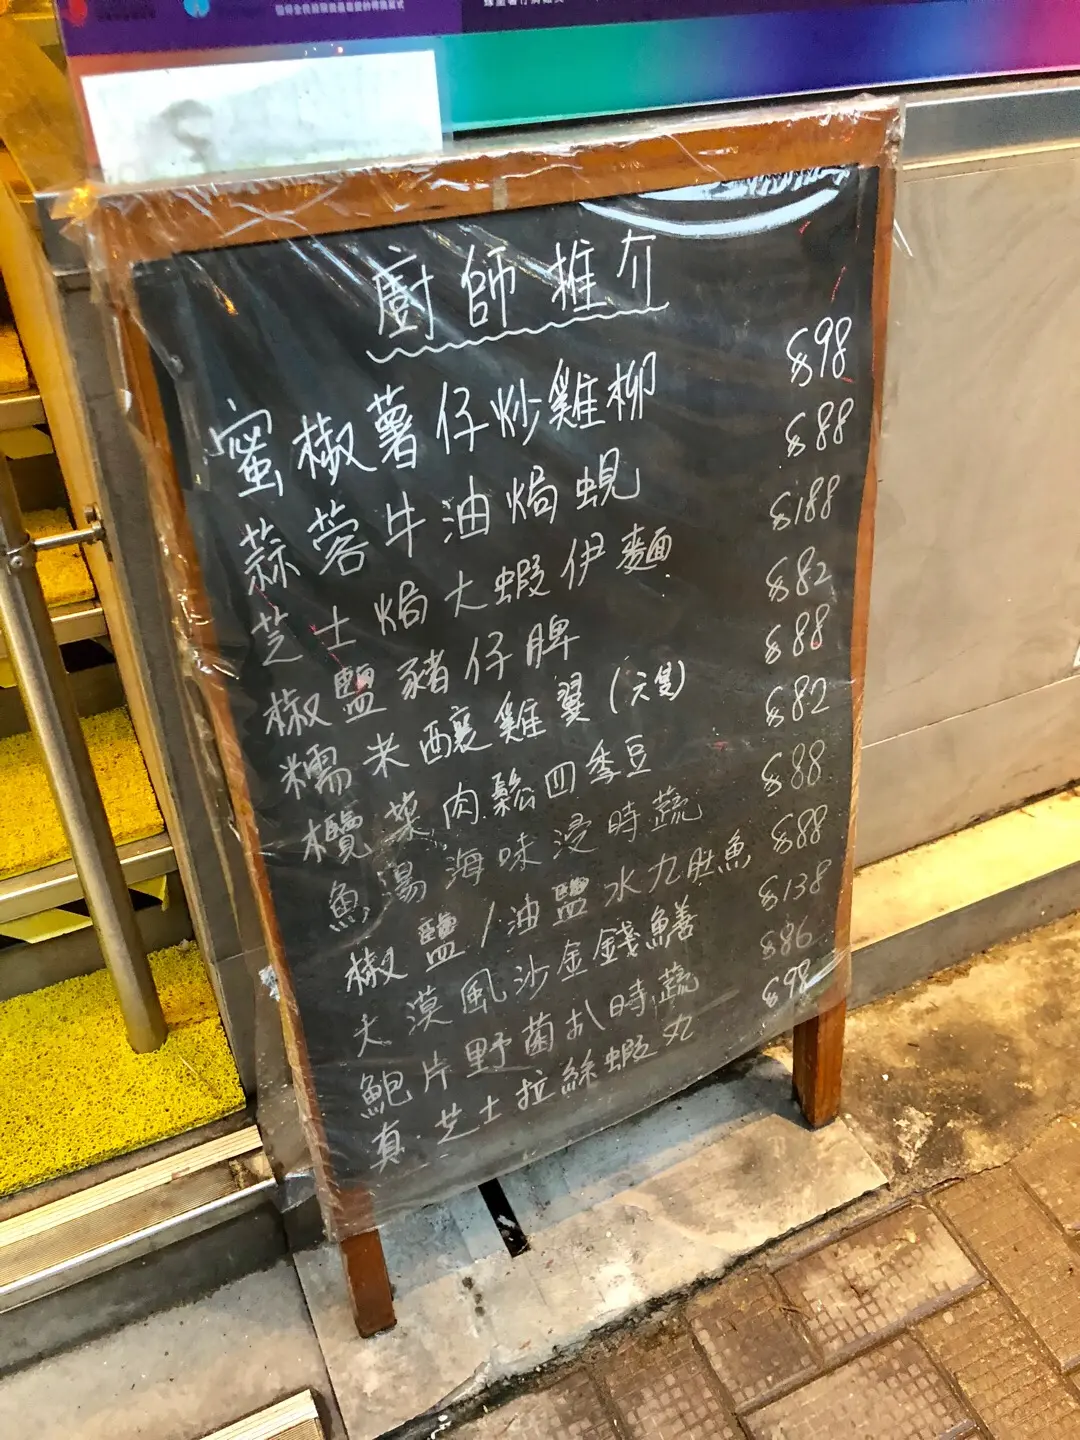 廚師推介
蜜椒薯仔炒雞柳 $98
蒜蓉牛油焗蜆 $88
芝士焗大蝦伊麵 $188
椒鹽豬仔脾 $82
糯米釀雞翼(六隻) $88
欖菜肉鬆四季豆 $82
魚湯海味浸時蔬 $88
椒鹽/油鹽水九肚魚 $88
大漠風沙金錢鱔 $138
鮑片野菌扒時蔬 $86
真.芝士拉絲蝦丸 $98